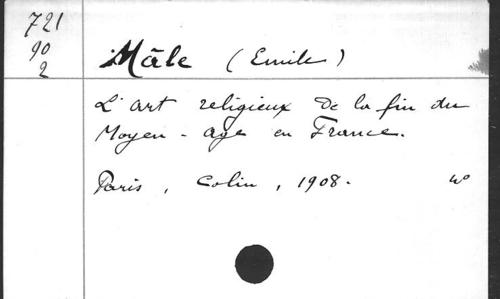 721
90
2
Mâle (Emile)
L'art religieux de la fin du
Moyen-age en France.
Paris, Colin, 1908.